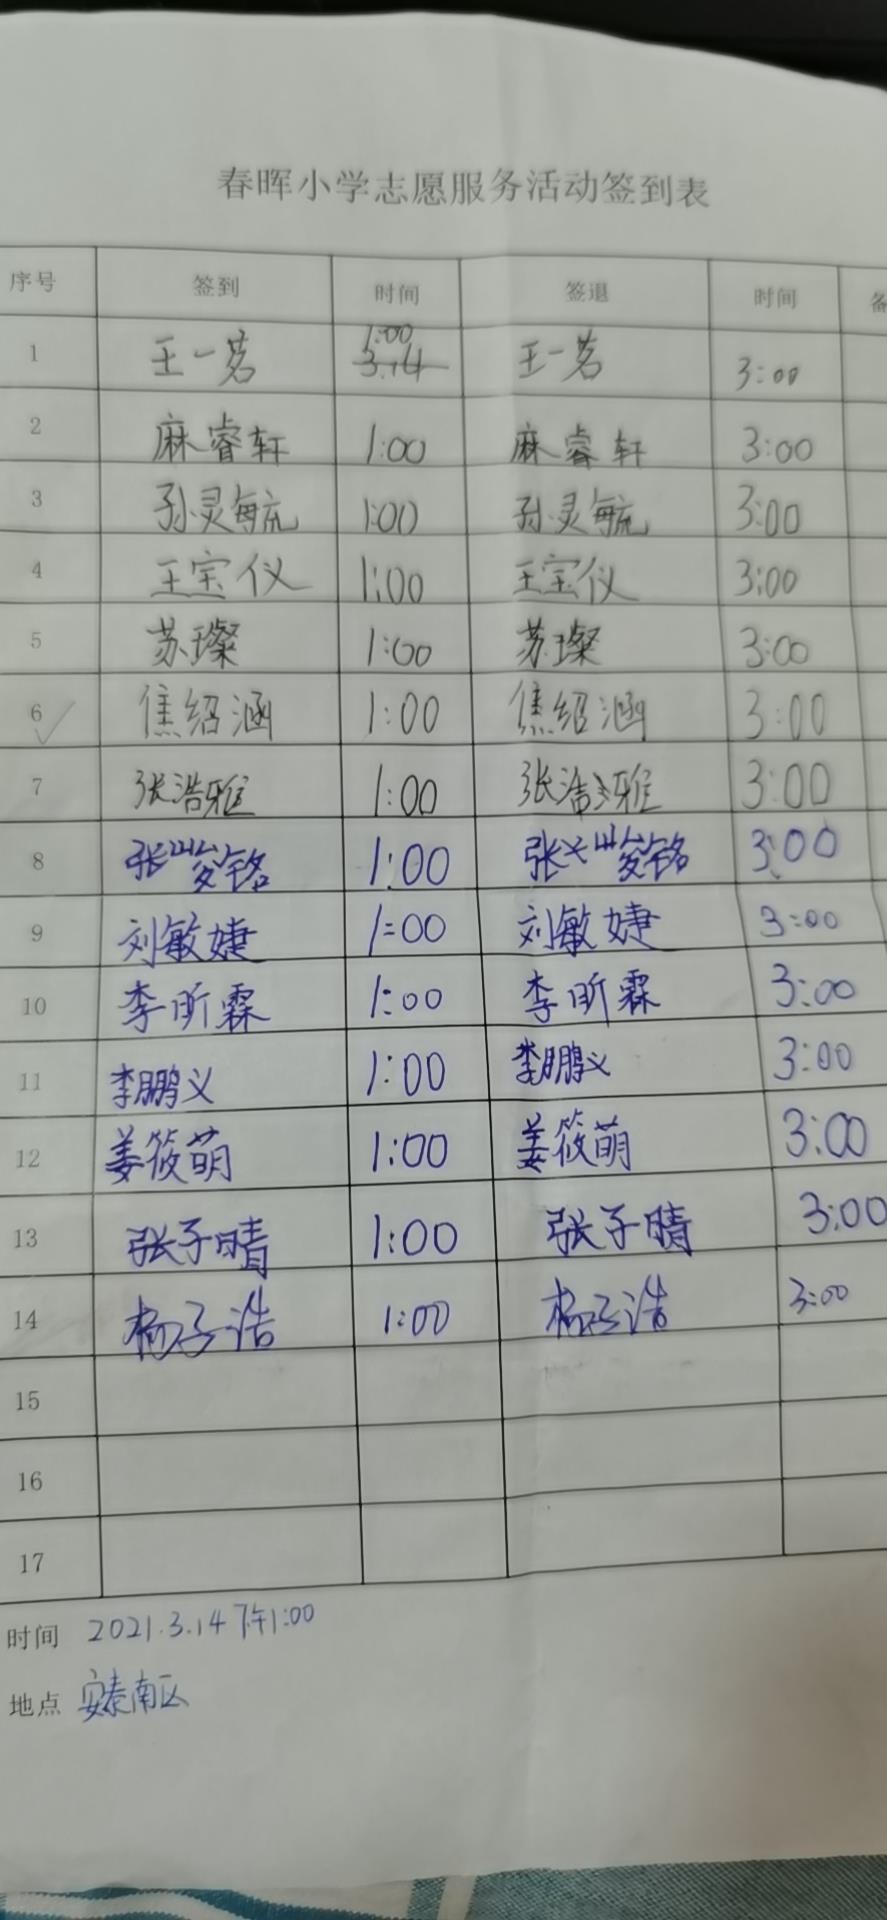 春晖小学志愿服务活动签到表
序号 签到 时间 签退 时间 备
1 王一茗 1:00 3.14 王一茗 3:00
2 麻睿轩 1:00 麻睿轩 3:00
3 孙灵毓 1:00 孙灵毓 3:00
4 王宝仪 1:00 王宝仪 3:00
5 苏璨 1:00 苏璨 3:00
6 焦绍涵 1:00 焦绍涵 3:00
7 张浩雅 1:00 张浩雅 3:00
8 1:00 3:00
9 刘敏婕 1:00 刘敏婕 3:00
10 李昕霖 1:00 李昕霖 3:00
11 李鹏义 1:00 李鹏义 3:00
12 姜筱萌 1:00 姜筱萌 3:00
13 张子晴 1:00 张子晴 3:00
14 杨子浩 1:00 杨子浩 3:00
15
16
17
时间 2021.3.14下午1:00
地点 安泰南区